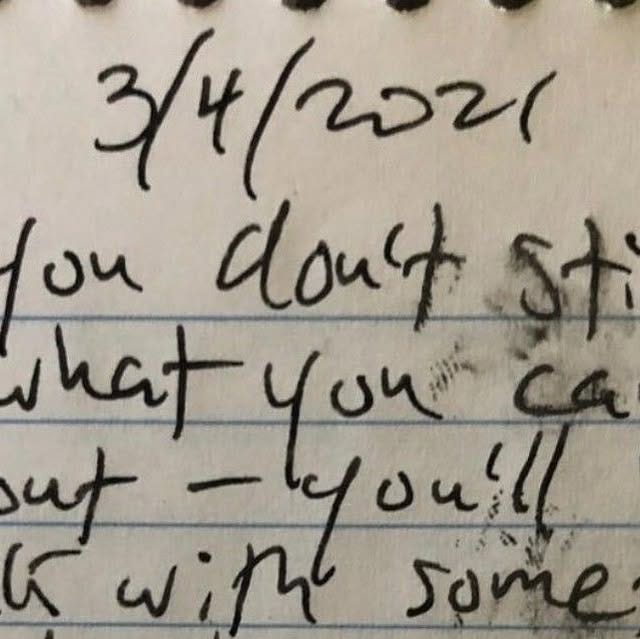 3/4/2021
you don't sti
what you ca
out - you'll
k with some